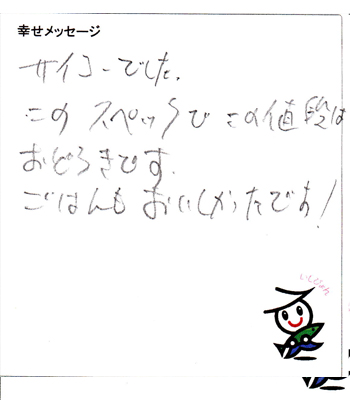 幸せメッセージ
サイコーでした。
このスペックでこの値段は
おどろきです。
ごはんもおいしかったです!